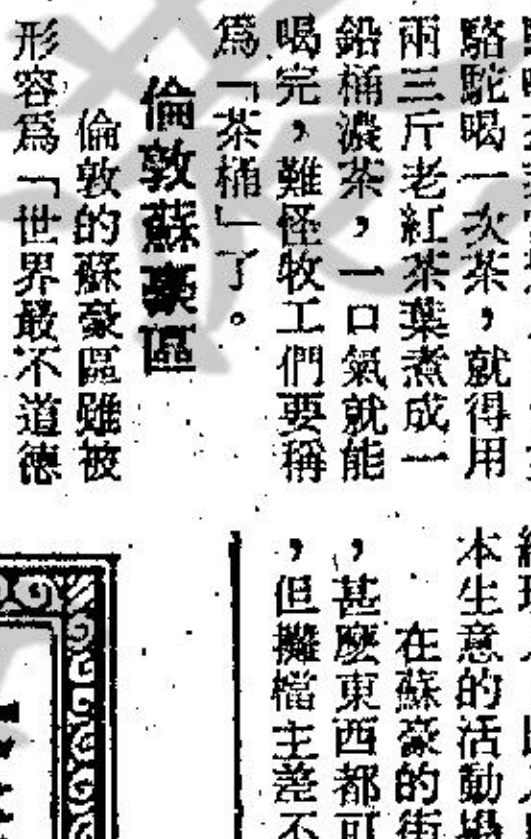 駱駝喝一次茶，就得用
兩三斤老紅茶葉煮成一
鉛桶濃茶，一口氣就能
喝完，難怪牧工們要稱
爲「茶桶」了。
倫敦蘇豪區
倫敦的蘇豪區雖被
形容爲「世界最不道德
本生意的活動
在蘇豪的街
，甚麼東西都可
，但攤檔主差不